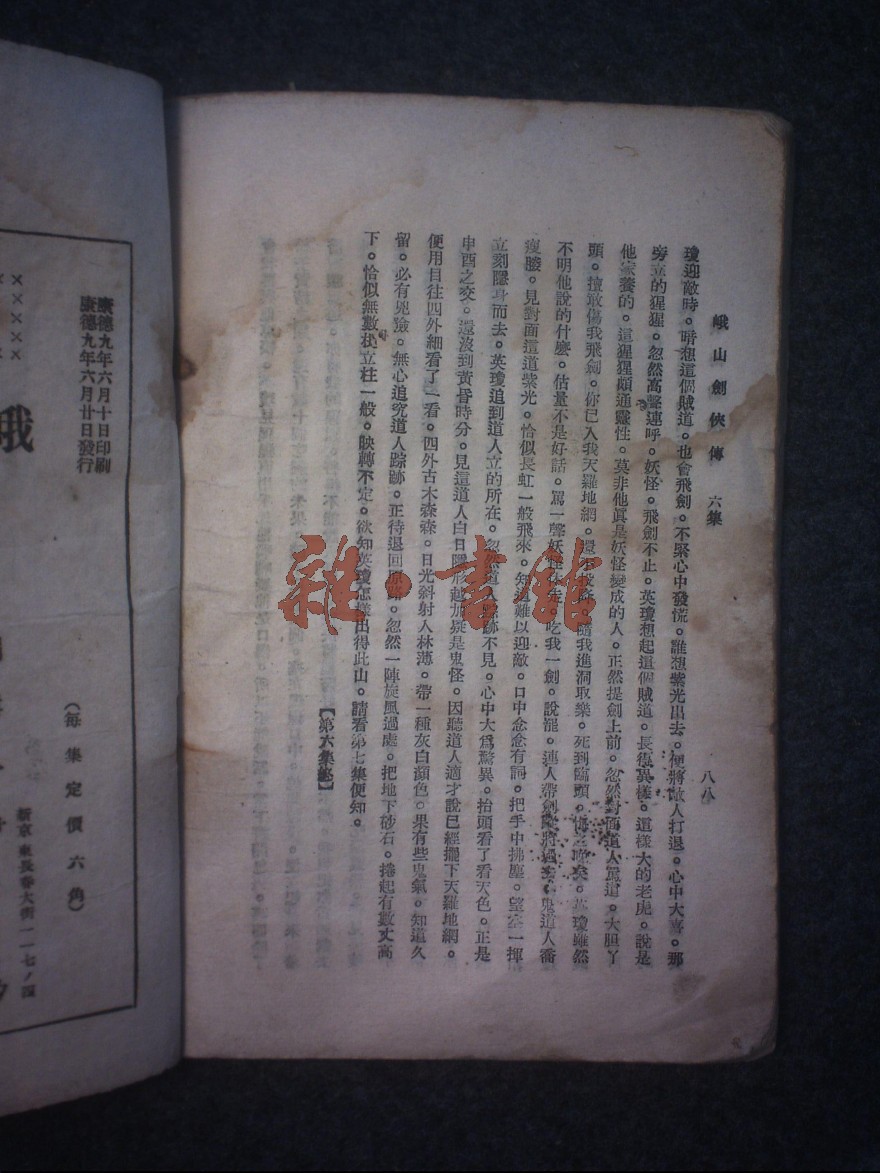 峨山劍俠傳 六集
八八
瓊迎敵時。暗想這個賊道。也會飛劍。不緊心中發慌。誰想紫光出去。便將敵人打退。心中大喜。那
旁立的猩猩。忽然高聲連呼。妖怪。飛劍不止。英瓊想起這個賊道。長得異樣。這樣大的老虎。說是
他豢養的。這猩猩頗通靈性。莫非他眞是妖怪變成的人。正然提劍上前。忽然對面道人罵道。大胆丫
頭。擅敢傷我飛劍。你已入我天羅地網。還不投降。隨我進洞取樂。死到臨頭。悔之晚矣。英瓊雖然
不明他說的什麼。估量不是好話。罵一聲妖怪休走。吃我一劍。說罷。連人帶劍
將過去。鬼道人喬
瘦滕。見對面這道紫光。恰似長虹一般飛來。知道難以迎敵。口中念念有詞。把手中拂塵。望空一揮
立刻隱身而去。英瓊追到道人立的所在。忽然道人踪跡不見。心中大爲驚異。抬頭看了看天色。正是
申酉之交。還沒到黃昏時分。見這道人白日隱形越加疑是鬼怪。因聽道人適才說已經擺下天羅地網。
便用目往四外細看了一看。四外古木森森。日光斜射入林薄。帶一種灰白顏色。果有些鬼氣。知道久
留。必有兇險。無心追究道人踪跡。正待退回原路。忽然一陣旋風過處。把地下砂石。捲起有數丈高
下。恰似無數
立柱一般。映轉不定。欲知英瓊怎樣出得此山。請看第七集便知。
【第六集終】
康德九年六月十日印刷
康德九年六月廿日發行
峨
（每集定價六角）
新京東長春大街一一七ノ四
雜·書館